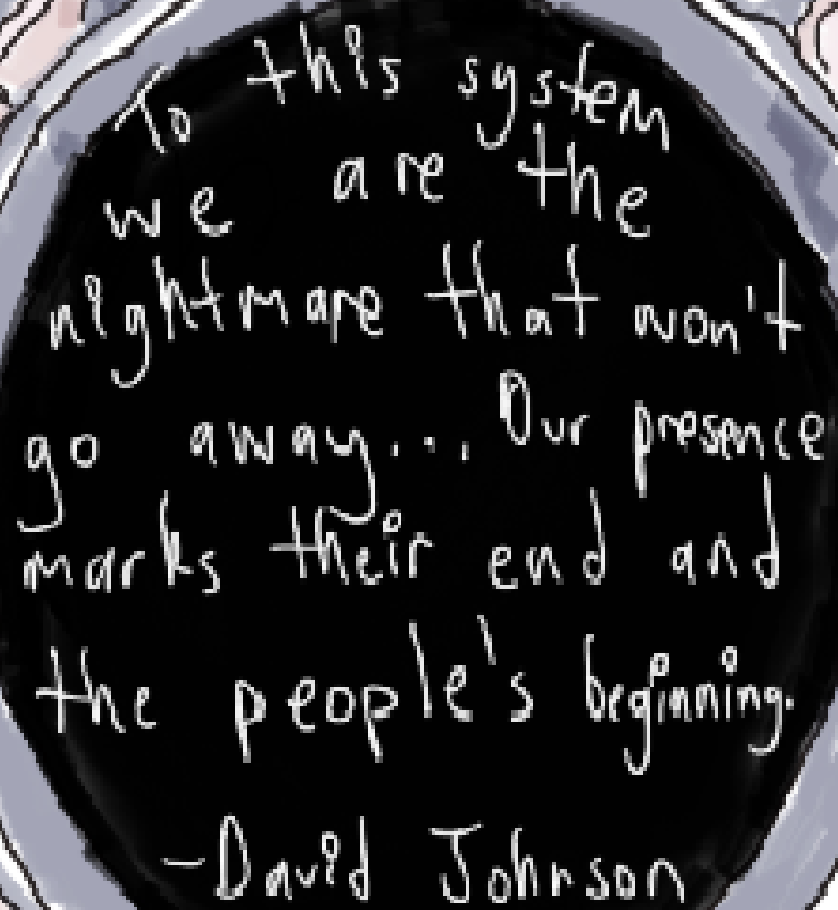 To this system
we are the
nightmare that won't
go away... Our presence
marks their end and
the people's beginning.
-David Johnson